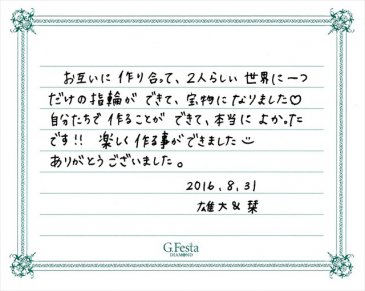 お互いに作り合って、2人らしい世界に一つ
だけの指輪ができて、宝物になりました♡
自分たちで作ることができて、本当によかった
です!! 楽しく作る事ができました
ありがとうございました。
2016.8.31
雄大&栞
G.Festa
DIAMOND